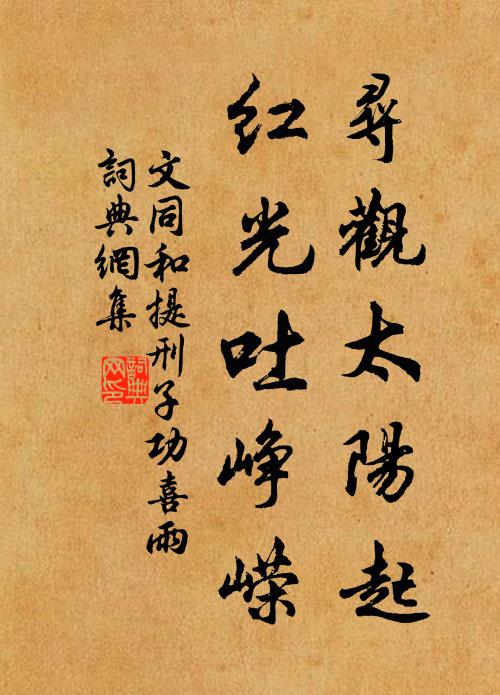 尋觀太陽起
紅光吐崢嶸
文同和提刑子功喜雨
詞典網集
詞典
网印